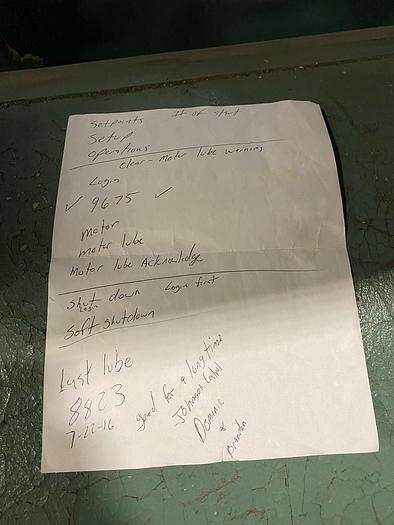 Setpoints # of start
Setup
operations
Clear - Motor lube warning
Login
✓ 9675 ✓
motor
motor lube
Motor lube Acknowledge
Shut down Login first
Login
Soft shutdown
Last lube
8823
7-22-16
good for a long time
Johnson
Dominic
&
Brandon